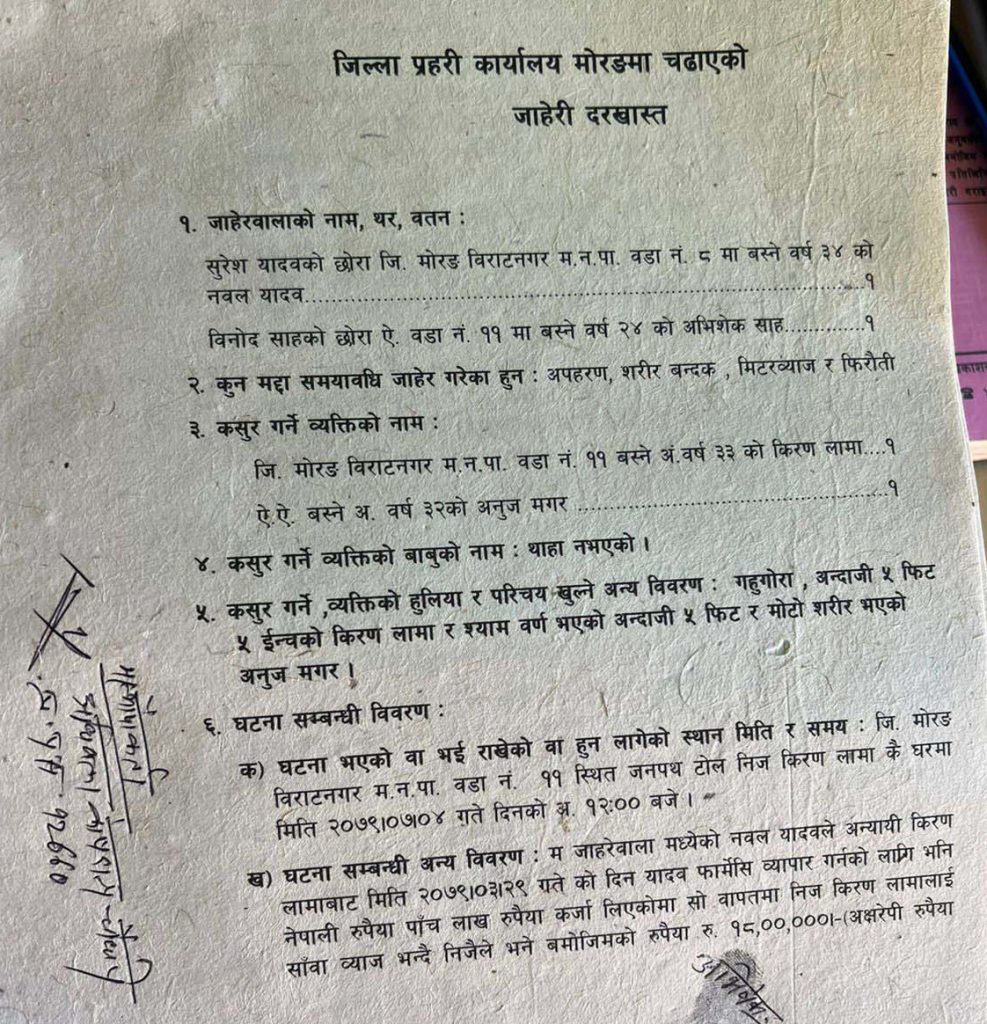 जिल्ला प्रहरी कार्यालय मोरङमा चढाएको
जाहेरी दरखास्त
१. जाहेरवालाको नाम, थर, वतन :
सुरेश यादवको छोरा जि. मोरङ विराटनगर म.न.पा. वडा नं. ८ मा बस्ने वर्ष ३४ को
नवल यादव..........................................................................................१
विनोद साहको छोरा ऐ. वडा नं. ११ मा बस्ने वर्ष २४ को अभिशेक साह..............१
२. कुन मद्दा समयावधि जाहेर गरेका हुन : अपहरण, शरीर बन्दक , मिटरव्याज र फिरौती
३. कसुर गर्ने व्यक्तिको नाम :
जि. मोरङ विराटनगर म.न.पा. वडा नं. ११ बस्ने अं.वर्ष ३३ को किरण लामा....१
ऐ.ऐ. बस्ने अ. वर्ष ३२को अनुज मगर ......................................................१
४. कसुर गर्ने व्यक्तिको बाबुको नाम : थाहा नभएको ।
५. कसुर गर्ने ,व्यक्तिको हुलिया र परिचय खुल्ने अन्य विवरण : गहुगोरा , अन्दाजी ५ फिट
५ ईन्चको किरण लामा र श्याम वर्ण भएको अन्दाजी ५ फिट र मोटो शरीर भएको
अनुज मगर ।
६. घटना सम्बन्धी विवरण :
क) घटना भएको वा भई राखेको वा हुन लागेको स्थान मिति र समय : जि. मोरङ
विराटनगर म.न.पा. वडा नं. ११ स्थित जनपथ टोल निज किरण लामा कै घरमा
मिति २०७९।०७।०४ गते दिनको अ. १२:०० बजे ।
ख) घटना सम्बन्धी अन्य विवरण : म जाहरेवाला मध्येको नवल यादवले अन्यायी किरण
लामाबाट मिति २०७९।०३।२९ गते को दिन यादव फार्मेसि व्यापार गर्नको लागि भनि
नेपाली रुपैया पाँच लाख रुपैया कर्जा लिएकोमा सो वापतमा निज किरण लामालाई
साँवा व्याज भन्दै निजैले भने बमोजिमको रुपैया रु. १८,००,०००।-(अक्षरेपी रुपैया